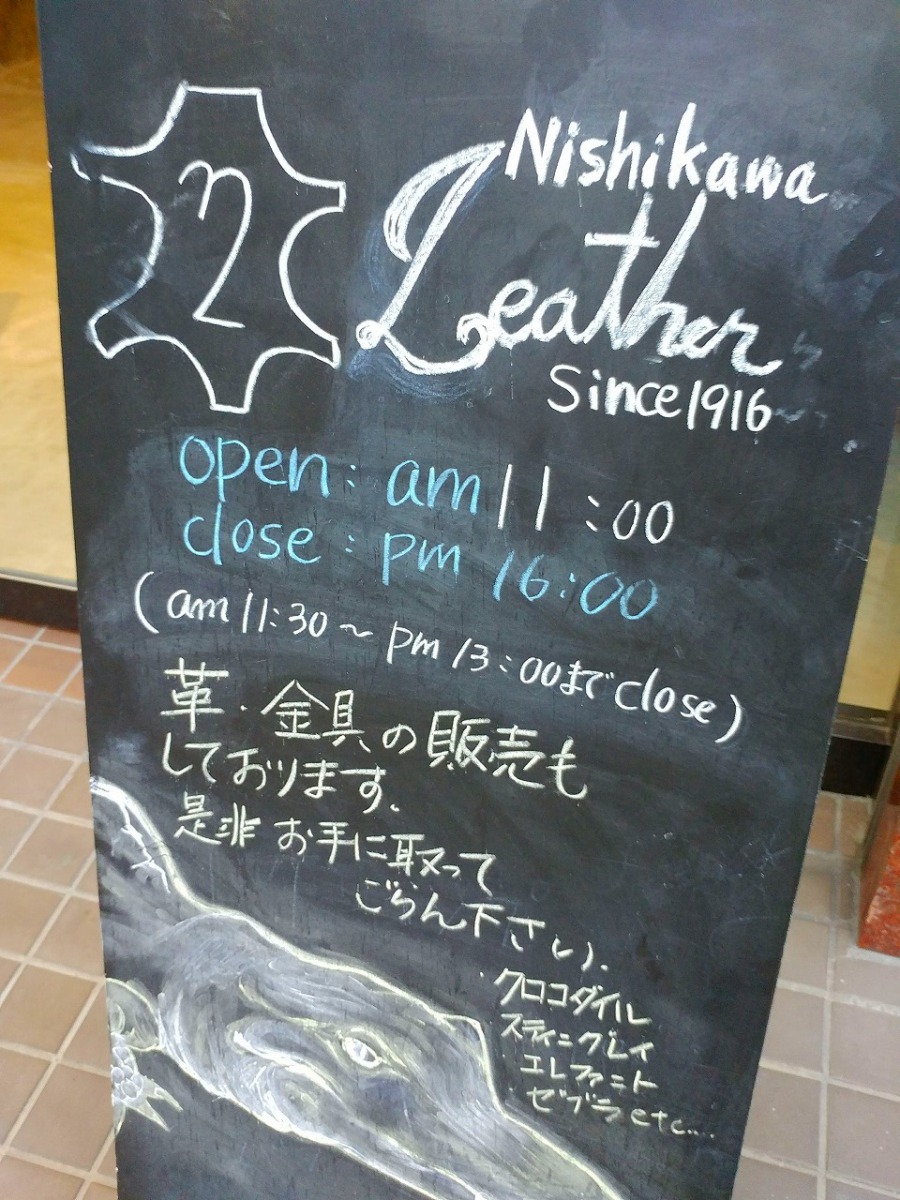 n
Nishikawa
Leather
Since 1916
open: am 11:00
close: pm 16:00
(am 11:30~pm 13:00までclose)
革・金具の販売も
しております。
是非 お手に取って
ごらん下さい。
・クロコダイル
スティングレイ
エレファント
ゼブラetc....